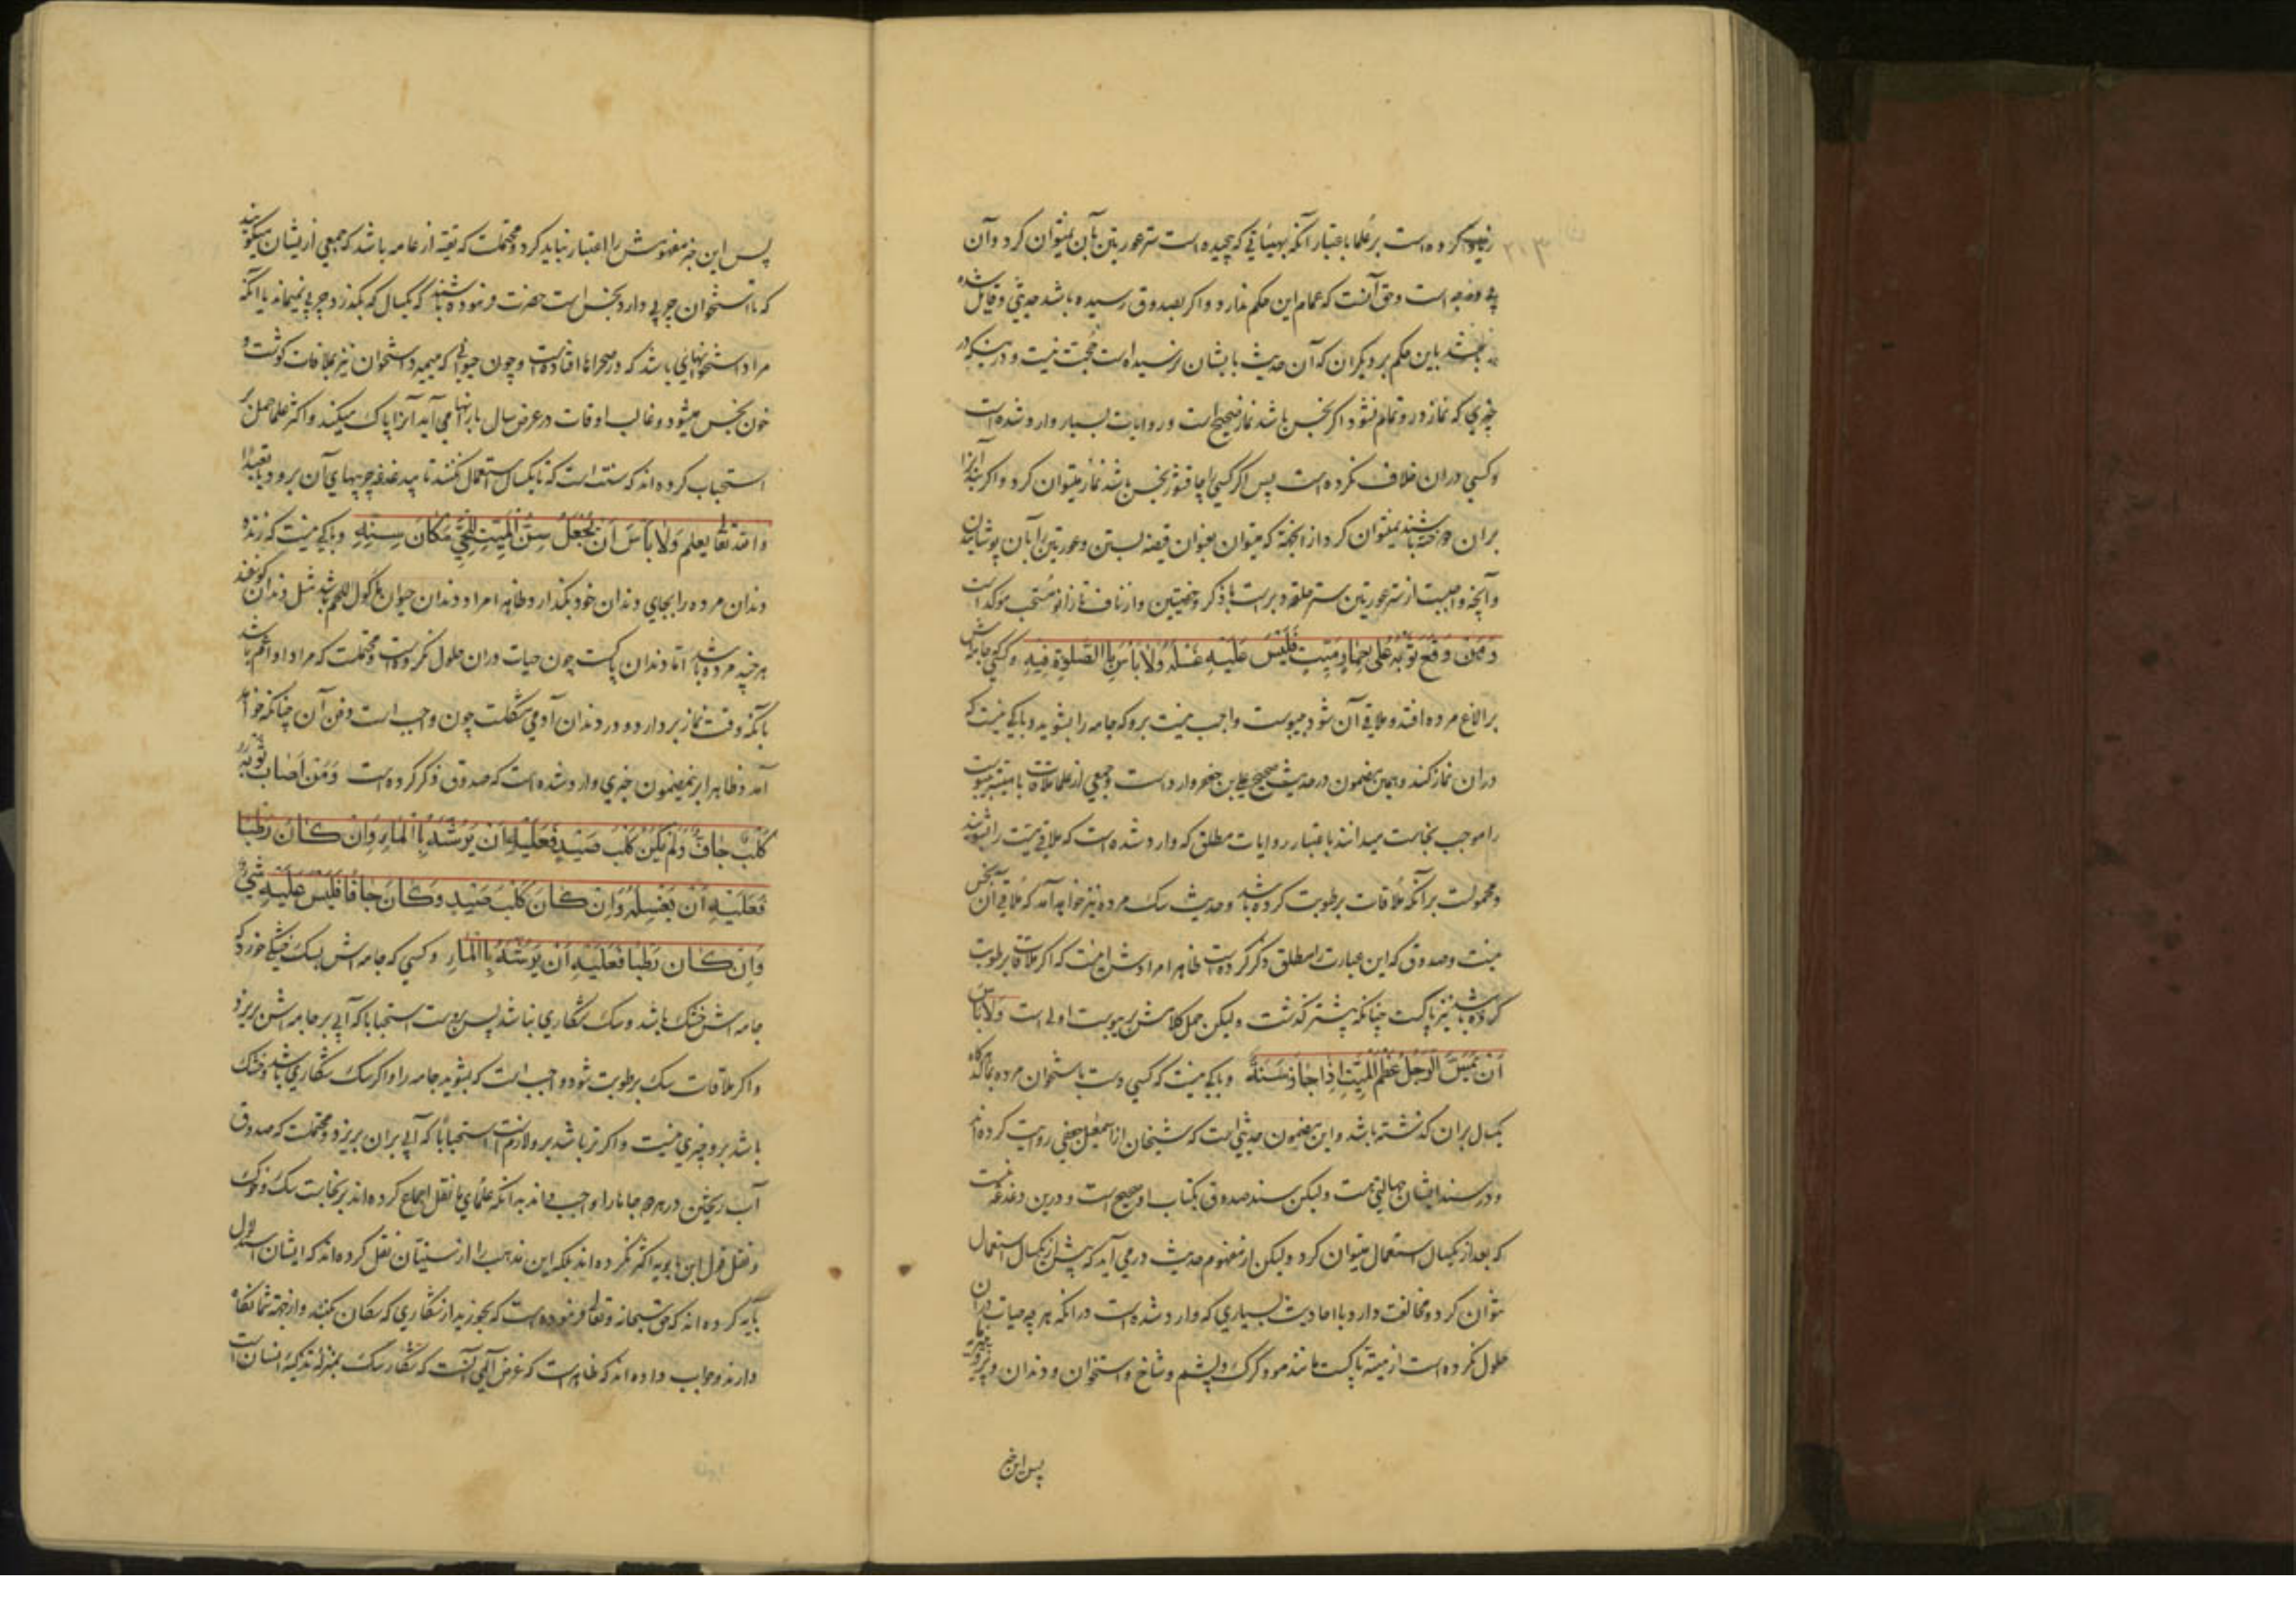 کرده است بر علما باعتبار آنکه بهیئاتی که پیچیده است ستر عورتین بآن نمیتوان کرد و آن
وجه است و حق آنست که عمامه این حکم ندارد و اگر بصدوق رسیده باشد حدیثی و قایل شده
باشد باین حکم بر دیگران که آن حدیث بایشان نرسیده است حجت نیست و در اینکه در
چیزی که نماز درو تمام نشود اگر نجس باشد نماز صحیح است و روایات بسیار وارد شده است
و کسی دران خلاف نکرده است پس اگر کسی را چاقشور نجس باشد نماز میتوان کرد و اگر بند ازار
بران دوخته باشند نمیتوان کرد از انجهة که میتوان بعنوان قیصه بستن و عورتین را بآن پوشانیدن
و آنچه واجبست از ستر عورتین ستر حلقه دبر است با ذکر و خصیتین و از ناف تا زانو مستحب مؤکد است
وَمَن وَقَعَ ثَوْبُه عَلی حِمارٍ مَیِّتٍ فَلَیْسَ عَلَیْهِ غَسْلُه وَلا بَأسَ بِالصَّلوةِ فیهِ و کسی که جامه‌اش
بر الاغ مرده افتد و ملاقی آن شود بیبوست واجب نیست برو که جامه را بشوید و باکی نیست که
دران نماز کند و همین مضمون در حدیث صحیح علی بن جعفر وارد است و جمعی از علما ملاقات با میته بیبوست
را موجب نجاست میدانند باعتبار روایات مطلق که وارد شده است که ملاقی میت را بشویند
و محمولست بر آنکه ملاقات برطوبت کرده باشد و حدیث سک مرده نیز خواهد آمد که ملاقی آن نجس
نیست و صدوق که این عبارت را مطلق ذکر کرده است ظاهرا مرادش اینست که اگر ملاقات برطوبت
کرده باشد نیز پاکست چنانکه پیشتر گذشت و لیکن حمل کلامش بر یبوست اولی است وَلا بَأسَ
اَن یَمَسَّ الرَّجُلُ عَظْمَ المَیِّتِ اِذا جازَ سَنَةً و باکی نیست که کسی دست باستخوان مرده بمالد هرگاه
یکسال بران گذشته باشد و این مضمون حدیثی است که شیخان از اسمعیل جعفی روایت کرده‌اند
و در سند ایشان جهالتی هست و لیکن سند صدوق بکتاب او صحیح است و درین دغدغه نیست
که بعد از یکسال استعمال میتوان کرد و لیکن از مفهوم حدیث در می آید که پیش از یکسال استعمال
نتوان کرد و مخالفت دارد با احادیث بسیاری که وارد شده است در انکه هر چه حیات دران
حلول نکرده است از میته پاکست مانند مو و کرک و پشم و شاخ و استخوان و دندان و پر
پس این خبر
پس این خبر مفهومش را اعتبار نباید کرد و محتملست که تقیه از عامه باشد که جمعی از یشان میگویند
که تا استخوان چربی دارد نجس است حضرت فرموده باشند که یکسال که بگذرد چربی نمیماند یا آنکه
مراد استخوانهائی باشد که در صحراها افتاده است و چون حیوانی که میمیرد استخوان نیز بملاقات گوشت و
خون نجس میشود و غالب اوقات در عرض سال بارانها می آید آنرا پاک میکند و اکثر علما حمل بر
استحباب کرده‌اند که سنت است که تا یکسال استعمال نکنند تا بید غدغه چربیهای آن برود یا تعبدا
والله تعالی یعلم وَلا بَأسَ اَن یُجْعَلَ سِنُّ المَیِّتِ لِلحَیِّ مَکانَ سِنِّهِ و باکی نیست که زنده
دندان مرده را بجای دندان خود بگذارد و ظاهرا مراد دندان حیوان ماکول اللحم باشد مثل دندان گوسفند
هر چند مرده باشد اما دندان پاکست چون حیات دران حلول نکرده است و محتملست که مراد او اعم باشد
بانکه وقت نماز بردارد و در دندان آدمی مشکلست چون واجب است دفن آن چنانکه خواهد
آمد و ظاهرا برینمضمون خبری وارد شده است که صدوق ذکر کرده است وَمَن اَصابَ ثَوْبَهُ
کَلْبٌ جافٌّ وَلَم یَکُنْ کَلْبَ صَیْدٍ فَعَلَیْهِ اَنْ یَرُشَّهُ بِالمآءِ وَاِن کانَ رَطْبًا
فَعَلَیْهِ اَنْ یَغْسِلَهُ وَاِن کانَ کَلْبَ صَیْدٍ وَکانَ جافًّا فَلَیْسَ عَلَیْهِ شَیْءٌ
وَاِنْ کانَ رَطْبًا فَعَلَیْهِ اَنْ یَرُشَّهُ بِالمآءِ و کسی که جامه‌اش بسک خشکی خورد که
جامه‌اش خشک باشد و سک شکاری نباشد پس بروست استحبابا که آبی بر جامه‌اش بریزد
و اگر ملاقات سک برطوبت شود واجب است که بشوید جامه را و اگر سک شکاری باشد و خشک
باشد برو چیزی نیست و اگر تر باشد برو لازم است استحبابا که آبی بران بریزد و محتملست که صدوق
آب ریختن در هر دو جا را واجب داند بدانکه علمای ما نقل اجماع کرده‌اند بر نجاست سک و خوک
و نقل قول ابن بابویه اکثر نکرده‌اند بلکه این مذهب را از سنیان نقل کرده‌اند که ایشان استدلال
بآیه کرده‌اند که حق سبحانه و تعالی فرموده است که بخورید از شکاری که سکان بکنند و از جهة شما نگاه
دارند و جواب داده‌اند که ظاهر است که غرض الهی آنست که شکار سک بمنزله تذکیه انسان است